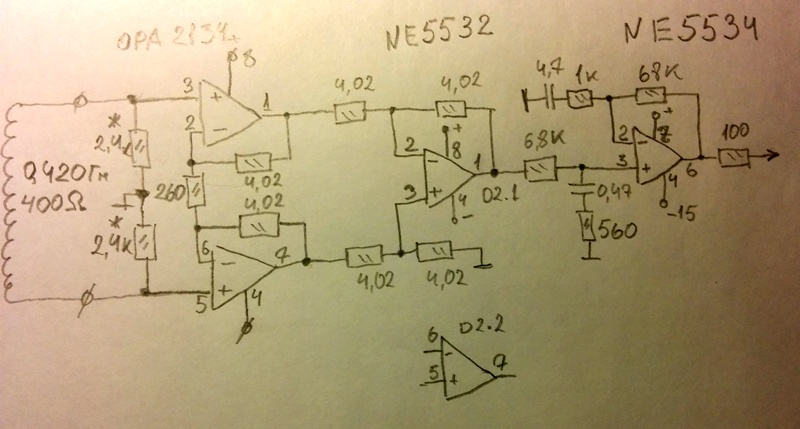 OPA 2134
NE5532
NE5534
8
3
+
1
2
-
*
2,4к
0,420Гн
400Ω
260
4,02
4,02
*
2,4к
6
-
7
5
+
4
4,02
4,02
2
-
+
8
1
3
+
4
-
D2.1
4,02
4,02
6,8К
4,7
1к
68К
2
-
+
7
3
+
6
4
-15
100
0,47
560
D2.2
6
-
5
+
7